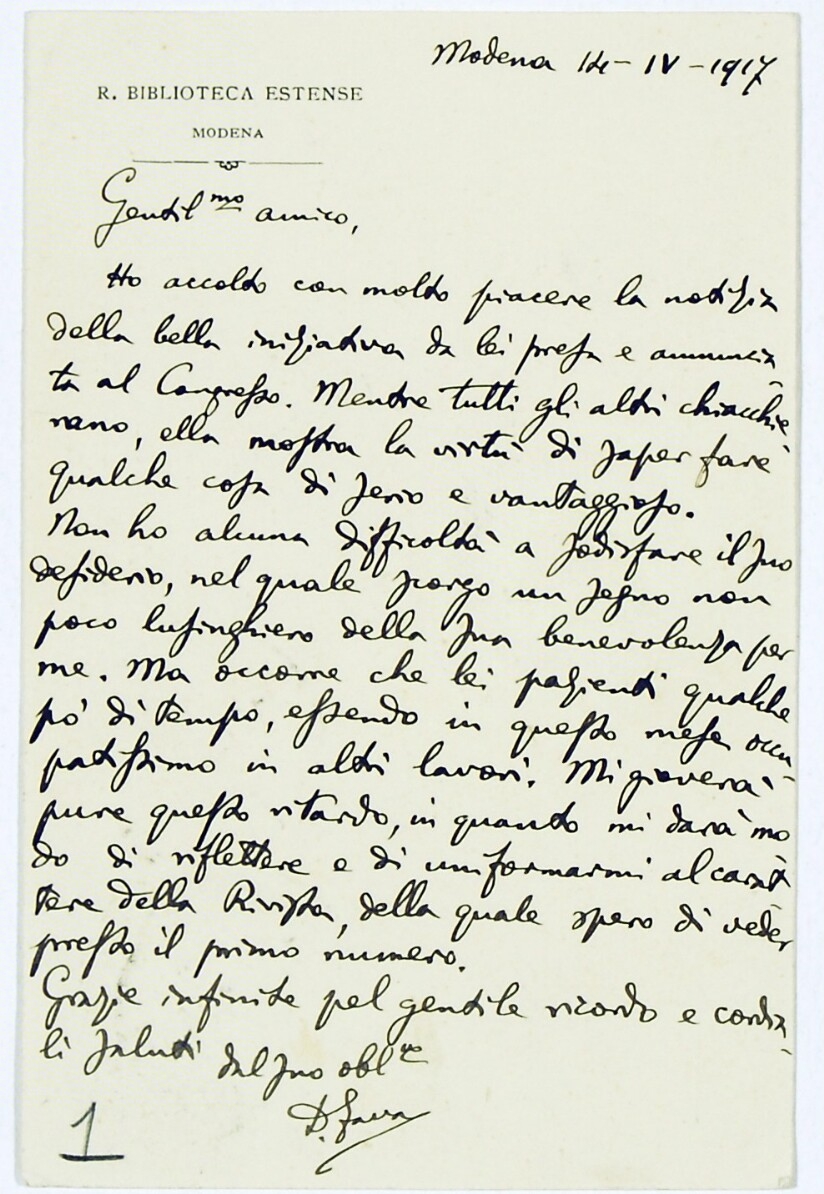 Modena 14-IV-1917
R. BIBLIOTECA ESTENSE
MODENA
Gentil.mo amico,
Ho accolto con molto piacere la notizia
della bella iniziativa da lei presa e annuncia-
ta al Congresso. Mentre tutti gli altri chiacchie-
rano, ella mostra la virtù di saper fare
qualche cosa di serio e vantaggioso.
Non ho alcuna difficoltà a sodisfare il suo
desiderio, nel quale scorgo un segno non
poco lusinghiero della sua benevolenza per
me. Ma occorre che lei pazienti qualche
pò di tempo, essendo in questo mese occu-
patissimo in altri lavori. Mi gioverà
pure questo ritardo, in quanto mi darà mo
do di riflettere e di uniformarmi al carat-
tere della Rivista, della quale spero di veder
presto il primo numero.
Grazie infinite pel gentile ricordo e cordia-
li saluti
dal suo obbl.mo
D. Fava
1